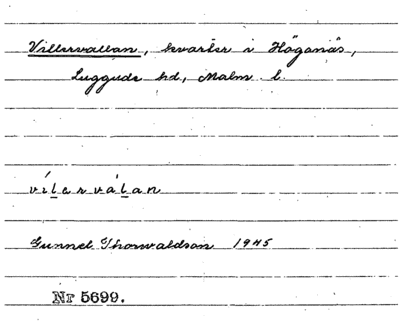 Villervallan, kvarter i Höganäs,
Luggude hd, Malm. l.
vílervàlan
Gunnel Thorwaldson 1945
Nr 5699.